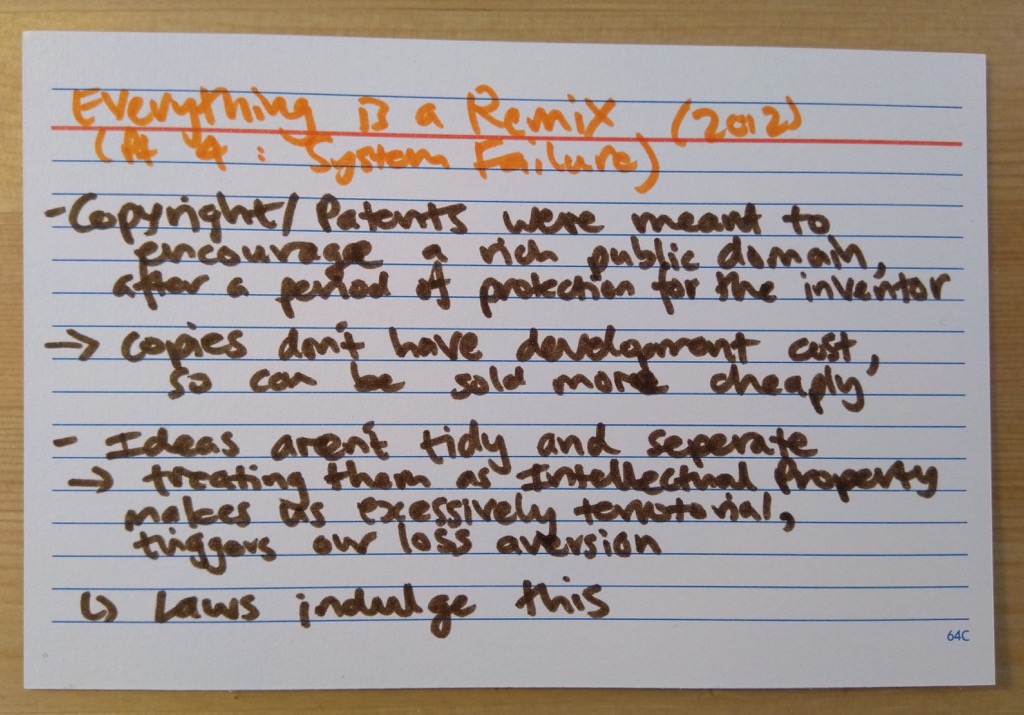 Everything is a Remix (2012)
(Pt 4: System Failure)
- Copyright/Patents were meant to
encourage a rich public domain,
after a period of protection for the inventor
→ copies don't have development cost,
so can be sold more cheaply
- Ideas aren't tidy and seperate
→ treating them as Intellectual Property
makes us excessively territorial,
triggers our loss aversion
↳ Laws indulge this
64C